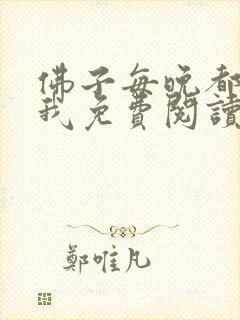 佛子每晚都
我免費閱讀
鄭唯凡